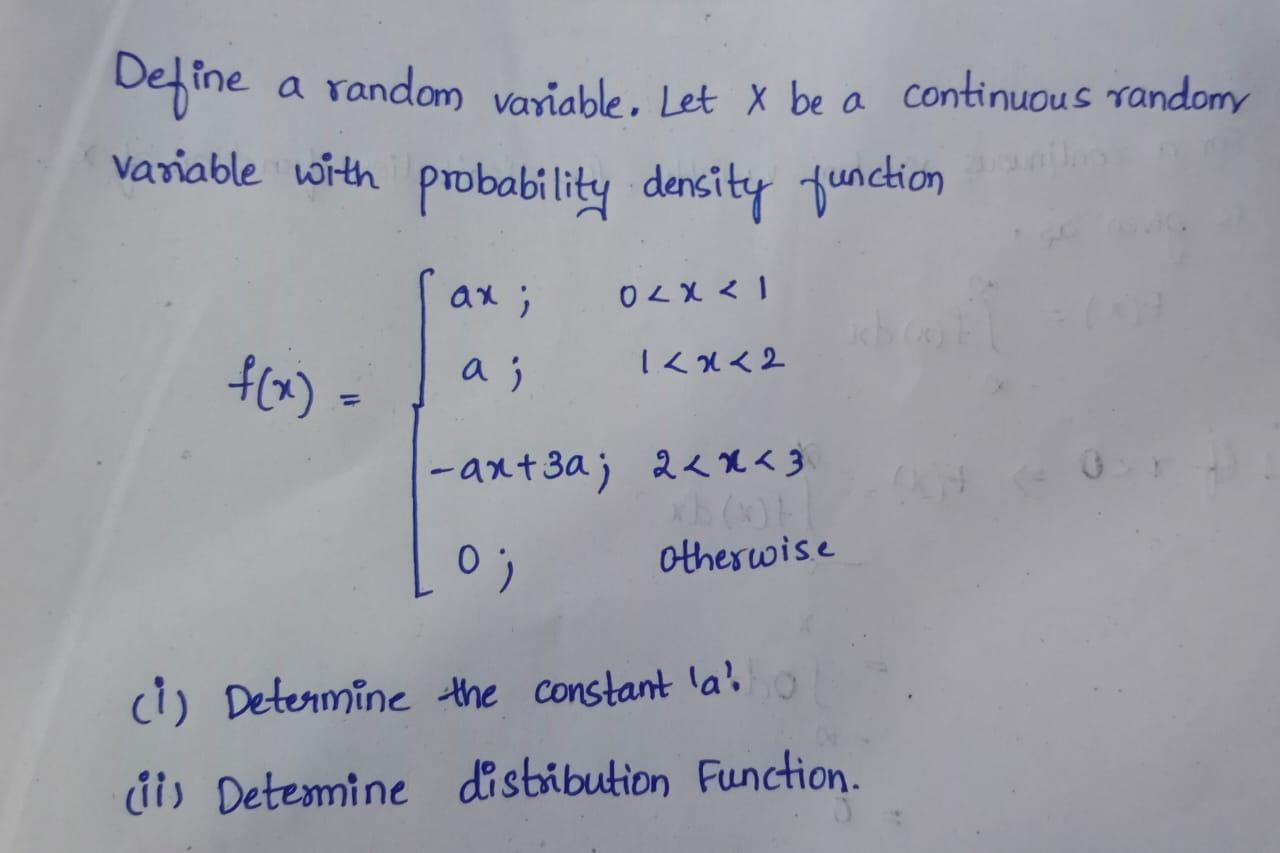 Define a random variable. Let X be a continuous random
variable with probability density function
f(x) = { ax ; 0 < x < 1
a ; 1 < x < 2
-ax+3a ; 2 < x < 3
0 ; otherwise
(i) Determine the constant 'a'.
(ii) Determine distribution Function.